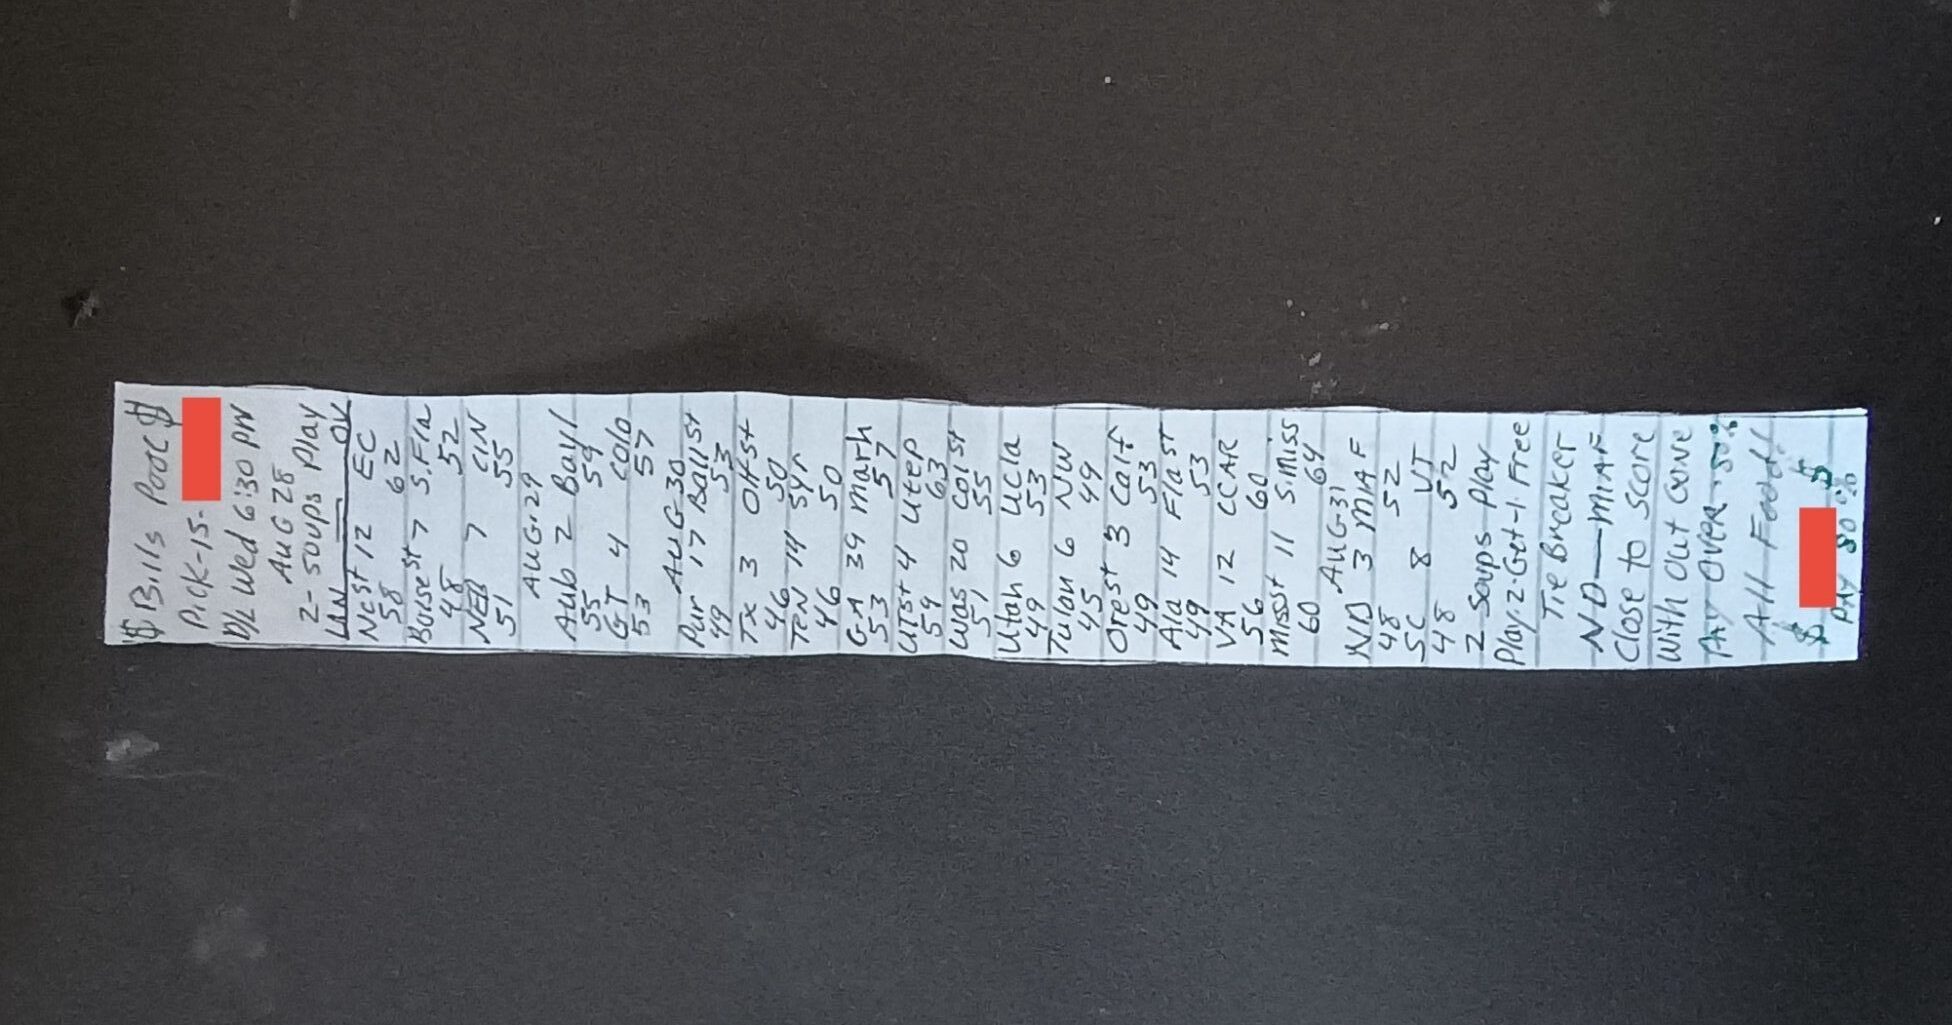 $ Bills Pool $
Pick-15-
D/L Wed 6:30 PM
AUG 28
2- Soups Play
UN OV
Ncst 12 EC
58 62
Boise st 7 S.Fla
48 52
NEB 7 CIN
51 55
AUG.29
Aub 2 Bayl
55 59
GT 4 Colo
53 57
AUG 30
Pur 17 Ball st
49 53
Tx 3 OHst
46 50
TeN 14 Syr
46 50
GA 39 Marh
53 57
UTst 4 Utep
59 63
Was 20 Colst
51 55
Utah 6 Ucla
49 53
Tulan 6 NW
45 49
Orest 3 Calf
49 53
Ala 14 Flast
49 53
VA 12 CCAR
56 60
Missst 11 S.Miss
60 64
AUG.31
ND 3 MIAF
48 52
SC 8 VT
48 52
2 Soups Play
Play.2.Get-1.Free
Tie Breaker
ND—MIAF
Close to Score
With Out Gone
Over
All Food!
$ $
PAY 80%